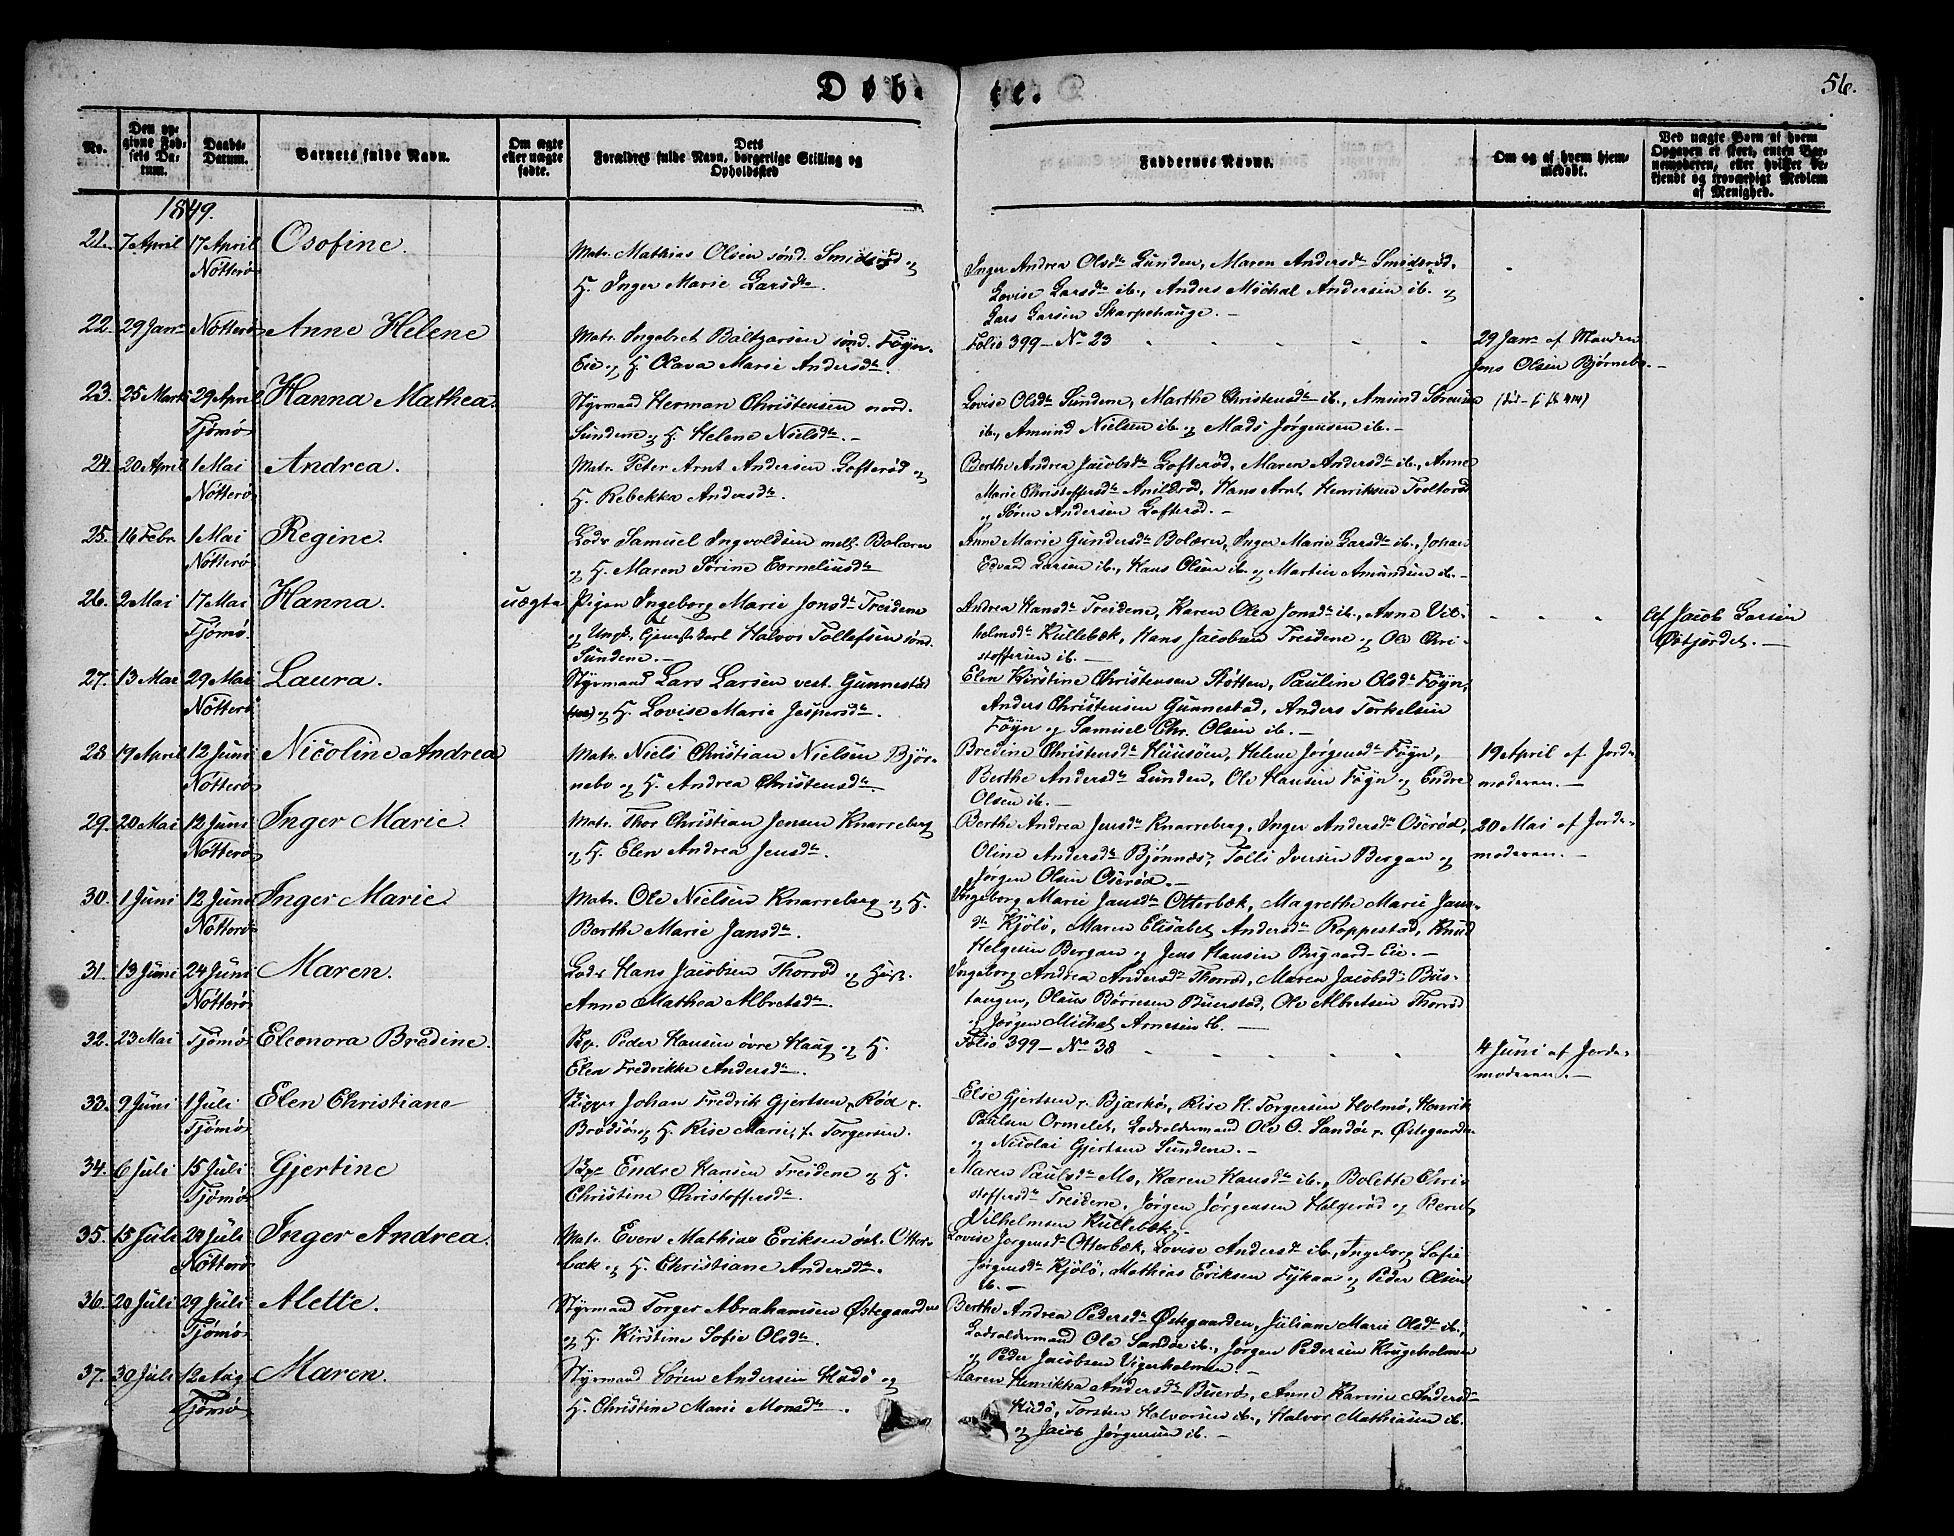 Døbte.
56.
No.
Den opgivne Fødsels Datum.
Daabs-Datum.
Barnets fulde Navn.
Om ægte eller uægte fødte.
Dets Forældres fulde Navn, borgerlige Stilling og Opholdssted
Faddernes Navne.
Om og af hvem hjemmedøbt.
Ved uægte Børn af hvem Opgaven er skeet, enten Barnemoderen, eller hvilket bekjendt og troværdigt Medlem af Menighed.
1849.
21. 7 April 17 April Nötterö Osofine.
Matr. Mathias Olsen sönd. Smidsröd og
H. Inger Marie Larsdtr.
Inger Andrea Olsdtr Lunden, Maren Andersdtr Smidsröd,
Lovise Larsdtr ib., Anders Michal Andersen ib. og
Lars Larsen Skarpehauge. —
22. 29 Janr Nötterö Anne Helene
Matr. Ingebret Baltzarsen sönd. Föyn-
Eie og H. Olava Marie Andersdtr.
Folio 399 — No 23
29 Janr af Manden
Jens Olsen Björnebo. —
23. 25 Marts 29 April Tjömö Hanna Mathea.
Styrmand Herman Christensen nord.
Sundene og H. Helene Nielsdtr. —
Lovise Olsdtr Sundene, Marthe Christensdtr ib., Amund Sörensen
ib., Amund Nielsen ib. og Mads Jörgensen ib. —
24. 20 April 1 Mai Nötterö Andrea.
Matr. Peter Arnt Andersen Gofteröd og
H. Rebekka Andersdtr.
Berthe Andrea Jacobsdtr Gofteröd, Maren Andersdtr ib., Anne
Marie Christoffersdtr Hans Arnt Henriksen
og Sören Andersen Gofteröd. —
25. 16 Febr. 1 Mai Nötterö Regine.
Lods Samuel Ingvoldsen mell. Bolæren
og H. Maren Sörine Corneliusdtr
Anne Marie Gundersdtr Bolæren, Inger Marie Larsdtr ib., Johan
Edvard Larsen ib., Hans Olsen ib. og Martin Amundsen ib. —
26. 2 Mai 17 Mai Tjömö. Hanna.
uægte
Pigen Ingeborg Marie Jonsdtr Treidene
og Ungk. Halvor Tollefsen sönd.
Sundene. —
Andrea Hansdtr Treidene, Karen Olea Jonsdtr ib., Anne Vil-
helmsdtr Kullebæk, Hans Jacobsen Treidene og Ole Chri-
stoffersen ib. —
Af Jacob Larsen
Østjordet. —
27. 13 Mai 29 Mai Nötterö Laura.
Styrmand Lars Larsen vest. Gunnestad
og H. Lovise Marie Jespersdtr.
Elen Kirstine Christensen Stötten, Pauline Olsdtr Föyn,
Anders Christensen Gunnestad, Anders Torkelsen
Föyn og Samuel Chr. Olsen ib. —
28 19 April 12 Juni Nötterö Nicoline Andrea
Matr. Niels Christian Nielsen Björ-
nebo og H. Andrea Christensdtr.
Bredine Christensdtr Huusöen, Helene Jörgensdtr Föyn,
Berthe Andersdtr Lunden, Ole Hansen Föyn og Endre
Olsen ib. —
19 April af Jorde-
moderen. —
29. 20 Mai 12 Juni Nötterö Inger Marie.
Matr. Thor Christian Jensen Knarreberg
og H. Elen Andrea Jensdtr.
Berthe Andrea Jensdtr Knarreberg, Inger Andersdtr Oseröd,
Oline Andersdtr Björnnæs, Tolli Iversen Bergan og
Jörgen Olsen Oseröd. —
20 Mai af Jorde-
moderen. —
30. 1 Juni 12 Juni Nötterö Inger Marie.
Matr. Ole Nielsen Knarreberg og H.
Berthe Marie Jansdtr.
Ingeborg Marie Jansdtr Otterbæk, Magrethe Marie Jans-
dtr Kjölö, Maren Elisabet Andersdtr Roppestad, Knud
Helgesen Bergan og Jens Hansen Brigaard-Eie. —
31. 13 Juni 24 Juni Nötterö Maren.
Lods Hans Jacobsen Thorröd og Hust.
Anne Mathea Albretsdtr.
Ingeborg Andrea Andersdtr Thorröd, Maren Jacobsdtr Bus-
tangen, Olaus Börresen Buerstad, Ole Albretsen Thorröd
og Jörgen Michal Arnesen ib. —
32. 23 Mai Tjömö Eleonora Bredine.
Skp. Peder Hansen övre Haug og H.
Elen Fredrikke Andersdtr.
Folio 399 — No 38
4 Juni af Jorde-
moderen. —
33. 9 Juni 1 Juli Tjömö Elen Christiane
Skippr Johan Fredrik Gjertsen, Röd p.
Brödsö og H. Rise Marie, f. Torgersen.
Else Gjertsen p. Bjærkö, Rise H. Torgersen Holmö, Henrik
Paulsen Ormelet, Lodsoldermand Ole O. Sandöe p. Østegaarden
og Nicolai Gjertsen Sundene. —
34. 6 Juli 15 Juli Tjömö Gjertine
Skpr Endre Hansen Treidene og H.
Christine Christoffersdtr.
Maren Paulsdtr Mo, Karen Hansdtr ib., Bolette Chri-
stoffersdtr Treidene, Jörgen Jörgensen Holgeröd og Bernt
Vilhelmsen Kullebæk. —
35. 15 Juli 24 Juli Nötterö Inger Andrea.
Matr. Even Mathias Eriksen öst. Otter-
bæk og H. Christiane Andersdtr.
Lovise Jörgensdtr Otterbæk, Lovise Andersdtr ib., Ingeborg Sofie
Jörgensdtr Kjölö, Mathias Eriksen Fjikaa og Peder Olsen
ib. —
36. 20 Juli 29 Juli Tjömö Alette.
Styrmand Torger Abrahamsen Østegaarden
og H. Kirstine Sofie Olsdtr.
Berthe Andrea Pedersdtr Østegaarden, Juliane Marie Olsdtr ib.,
Lodsoldermand Ole Sandöe ib., Jörgen Pedersen Krugeholmen
og Peder Jacobsen Vigerholmen. —
37. 30 Juli 12 Aug Tjömö Maren.
Styrmand Sören Andersen Hudö og
H. Christine Marie Monsdtr.
Maren Henrikka Andersdtr Bueröe, Anne Karine Andersdtr
Hudö, Torsten Halvorsen ib., Halvor Mathiasen ib.
og Jacob Jörgensen ib. —